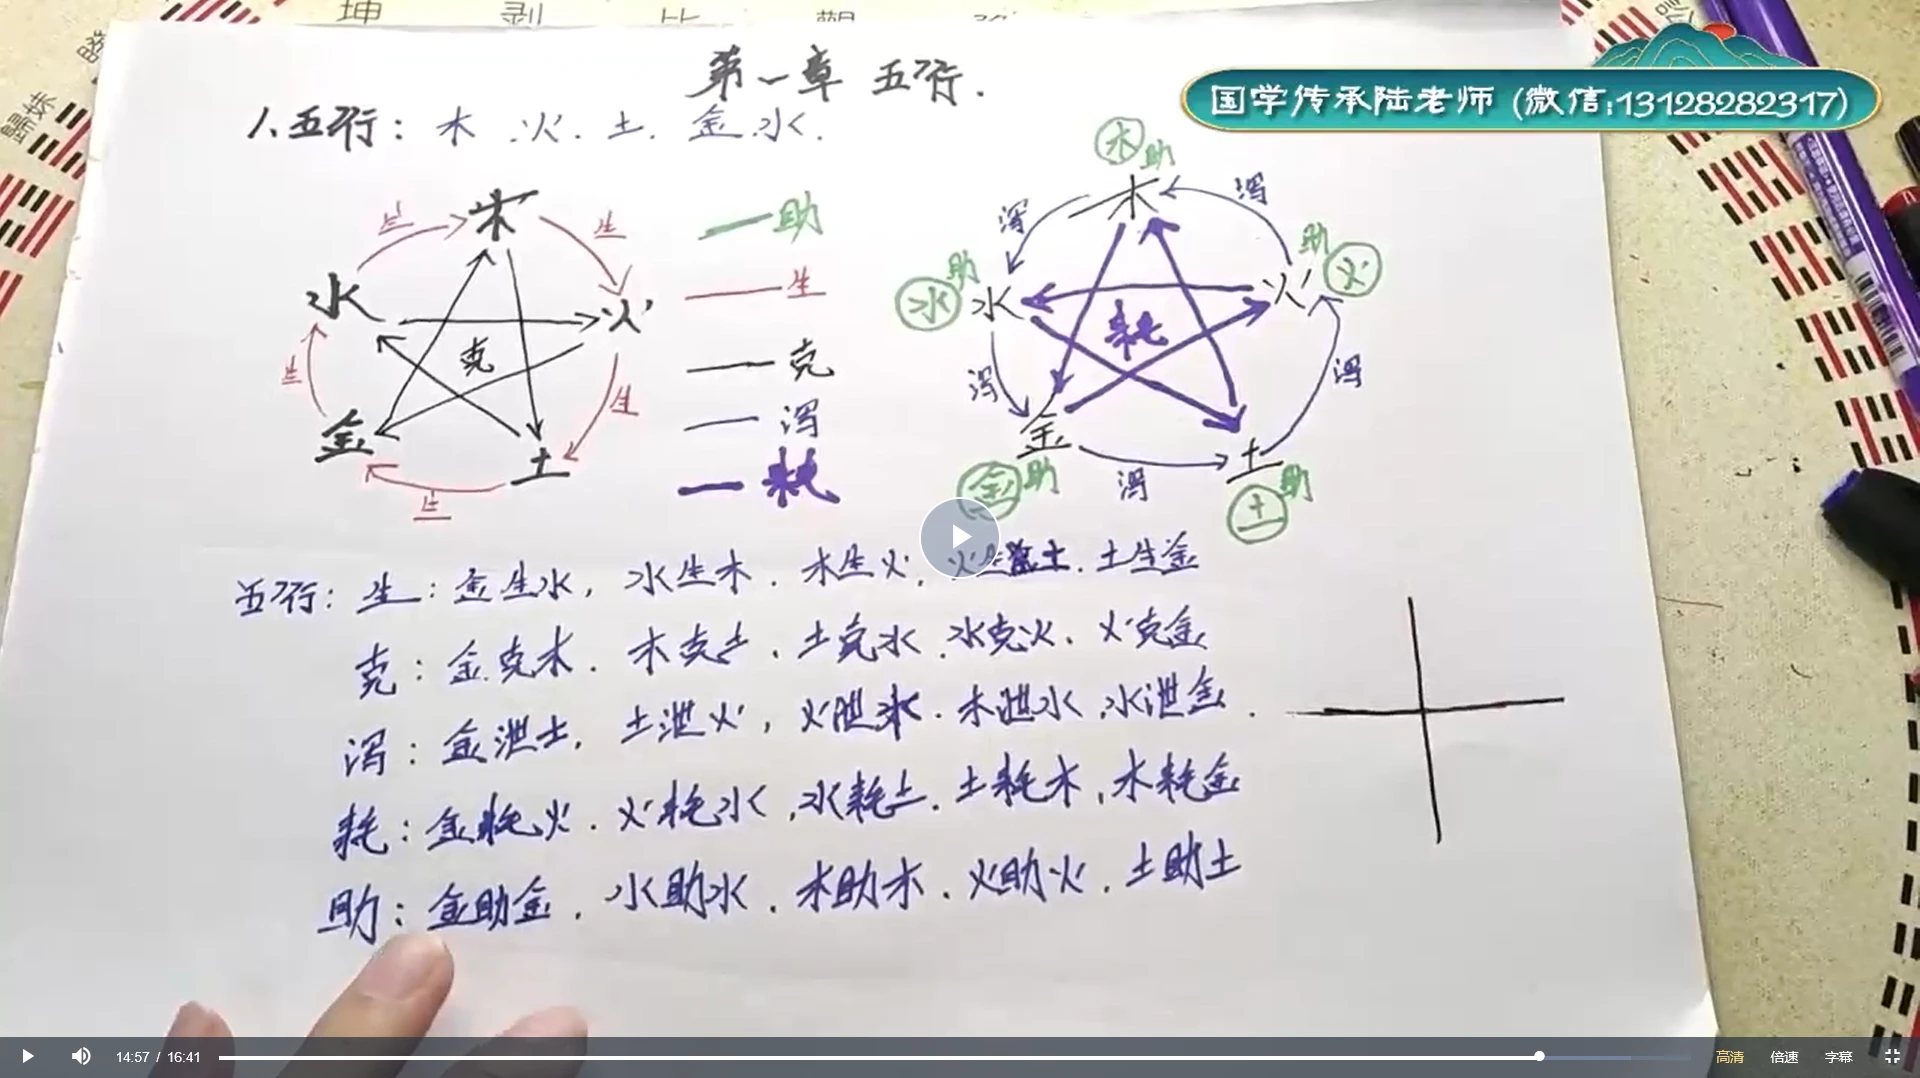 坤 剥 比 觀
歸妹
国学传承陆老师 (微信:13128282317)
第一章 五行.
1.五行: 木.火.土.金.水.
木 生 火 生 土 生 金 生 水 生
克
助
生
克
泻
耗
木 助 木 泻 火 助 火 泻 土 助 土 泻 金 助 金 泻 水 助 水 泻
耗
五行: 生: 金生水, 水生木. 木生火, 火生土. 土生金
克: 金克木. 木克土. 土克水. 水克火. 火克金
泻: 金泄土. 土泄火, 火泄木. 木泄水. 水泄金.
耗: 金耗火. 火耗水, 水耗土. 土耗木, 木耗金
助: 金助金. 水助水. 木助木. 火助火. 土助土
14:57 / 16:41 高清 倍速 字幕